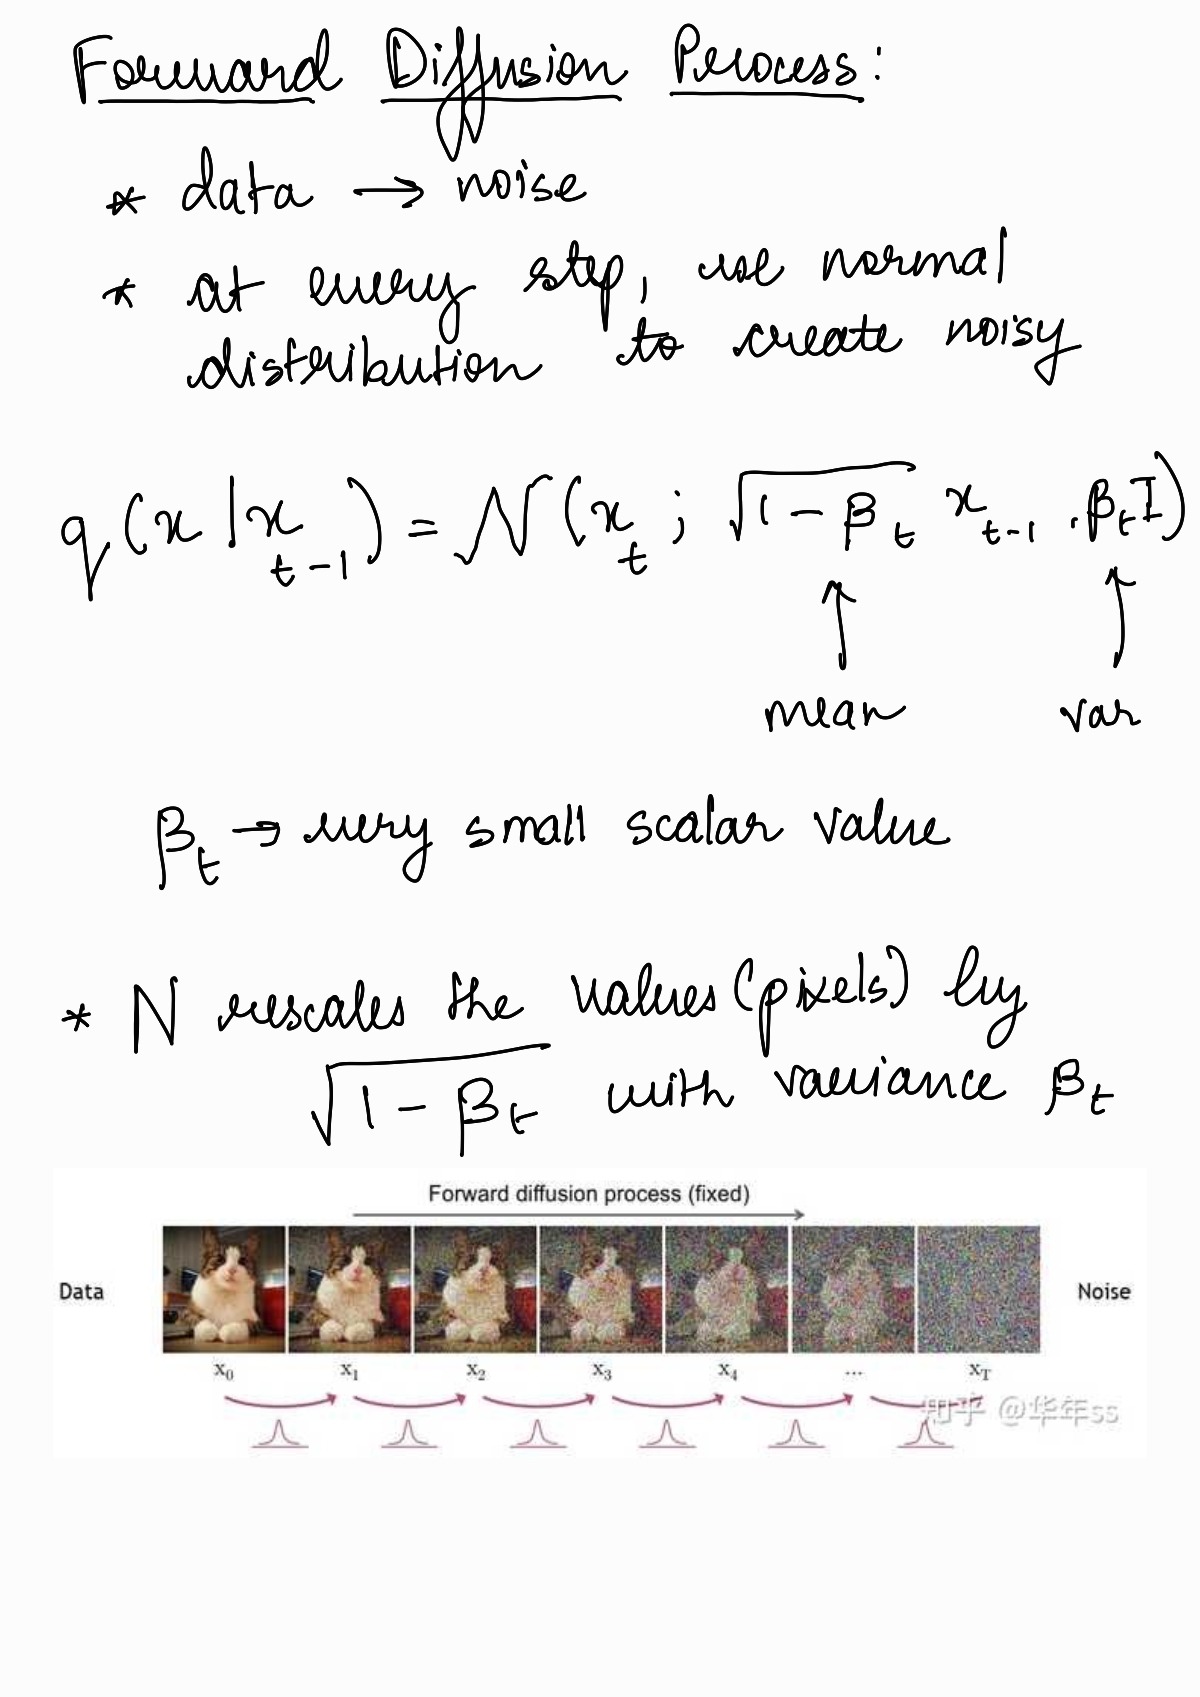 Forward Diffusion Process:
* data → noise
* at every step, use normal
distribution to create noisy
q(x|x_{t-1}) = N(x_t; √(1-β_t) x_{t-1}, β_t I)
↑ ↑
mean var
β_t → very small scalar value
* N rescales the values (pixels) by
√(1-β_t) with variance β_t
Forward diffusion process (fixed)
Data Noise
x₀ x₁ x₂ x₃ x₄ ... x_T
知乎 @华年ss